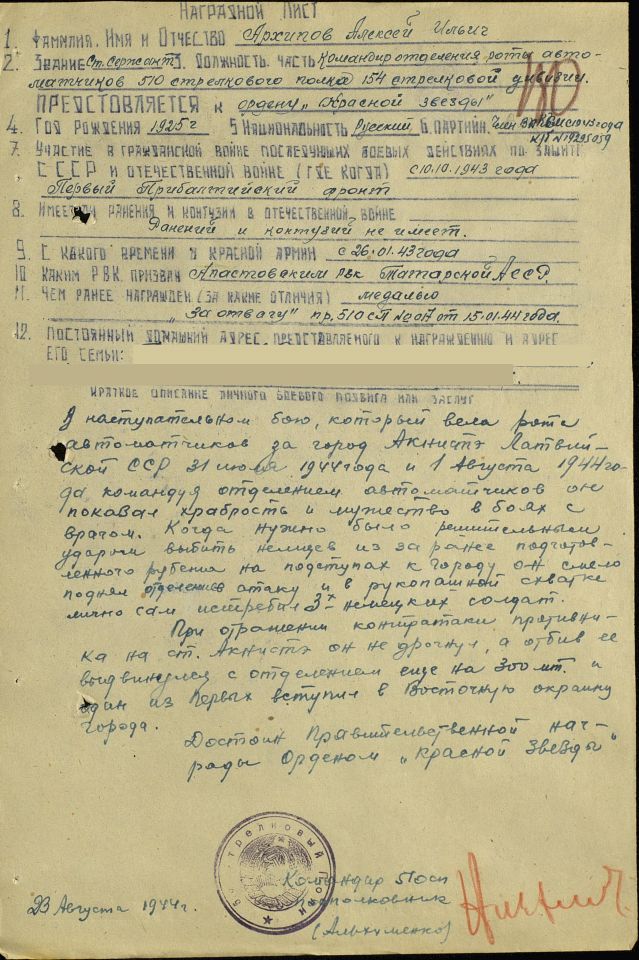 НАГРАДНОЙ ЛИСТ
1. ФАМИЛИЯ, ИМЯ И ОТЧЕСТВО Архипов Алексей Ильич
2. ЗВАНИЕ Ст. Сержант 3. ДОЛЖНОСТЬ, ЧАСТЬ Командир отделения роты авто-
матчиков 510 стрелкового полка 154 стрелковой дивизии.
ПРЕДСТОВЛЯЕТСЯ к ордену „Красной звезды"
4. ГОД РОЖДЕНИЯ 1925г 5 НАЦИОНАЛЬНОСТЬ Русский 6. ПАРТИЙН. Член ВКП(б) с 1943 года
7. УЧАСТИЕ В ГРАЖДАНСКОЙ ВОЙНЕ ПОСЛЕДУЮЩИХ БОЕВЫХ ДЕЙСТВИЯХ ПО ЗАЩИТЕ
СССР И ОТЕЧЕСТВЕННОЙ ВОЙНЕ (ГДЕ КОГДА) с 10.10.1943 года
Первый Прибалтийский фронт
8. ИМЕЕТ ЛИ РАНЕНИЯ И КОНТУЗИИ В ОТЕЧЕСТВЕННОЙ ВОЙНЕ
Ранений и контузий не имеет.
9. С КАКОГО ВРЕМЕНИ В КРАСНОЙ АРМИИ с 26.01.43 года
10 КАКИМ РВК. ПРИЗВАН Апастовским РВК Татарской АССР.
11. ЧЕМ РАНЕЕ НАГРАЖДЕН (ЗА КАКИЕ ОТЛИЧИЯ) медалью
„За отвагу" пр. 510 сп № 017 от 15.01.44 года.
12. ПОСТОЯННЫЙ ДОМАШНИЙ АДРЕС, ПРЕДСТАВЛЯЕМОГО К НАГРАЖДЕНИЮ И АДРЕС
ЕГО СЕМЬИ:
КРАТКОЕ ОПИСАНИЕ ЛИЧНОГО БОЕВОГО ПОДВИГА ИЛИ ЗАСЛУГ
В наступательном бою, который вела рота
автоматчиков за город Акнистэ Латвий-
ской ССР 31 июля 1944 года и 1 Августа 1944 го-
да командуя отделением автоматчиков он
показал храбрость и мужество в боях с
врагом. Когда нужно было решительным
ударом выбить немцев из за ранее подготов-
ленного рубежа на подступах к городу он смело
поднял отделение в атаку и в рукопашной схватке
лично сам истребил 3х немецких солдат.
При отражении контратаки противни-
ка на ст. Акнистэ он не дрогнул, а отбив ее
выдвинулся с отделением еще на 300 мт. и
один из первых вступил в Восточную окраину
города.
Достоин Правительственной наг-
рады Орденом „Красной Звезды"
Командир 510 сп
23 Августа 1944г. подполковник
(Альхименко)